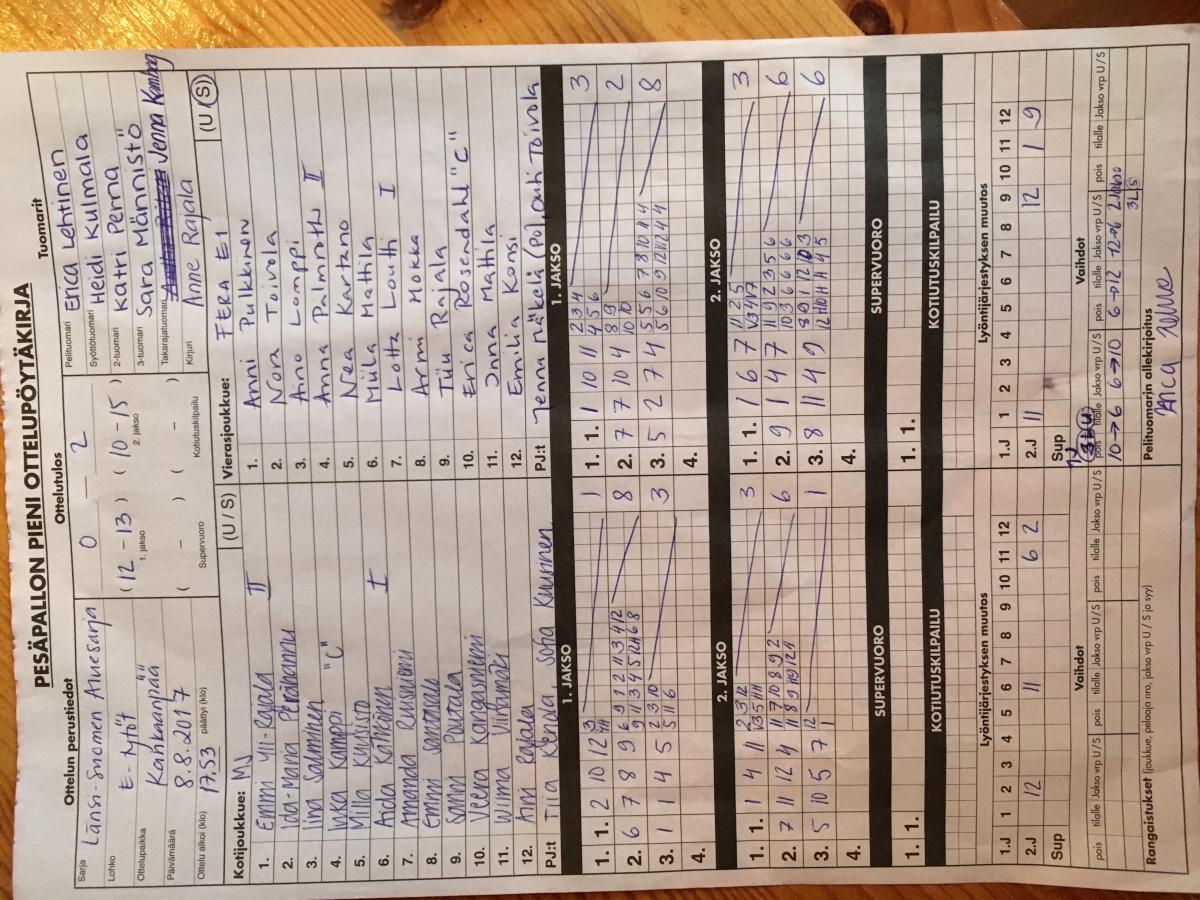 PESÄPALLON PIENI OTTELUPÖYTÄKIRJA
Ottelun perustiedot
Sarja Länsi-Suomen Aluesarja
Lohko E-tytöt
Ottelupaikka Kankaanpää
Päivämäärä 8.8.2017
Ottelu alkoi (klo) 17.53 päättyi (klo)
Ottelutulos
0 — 2
(12 - 13) (10 - 15)
1. jakso 2. jakso
( - ) ( - )
Supervuoro Kotiutuskilpailu
Tuomarit
Pelituomari Erica Lehtinen
Syöttötuomari Heidi Kulmala
2-tuomari Katri Perna
3-tuomari Sara Männistö
Takarajatuomari Jenna
Kirjuri Anne Rajala
Kotijoukkue: MJ (U / S)
1. Emmi Yli-Rajala II
2. Ida-Maria Perähannu
3. Iina Salminen
4. Inka Kamppi "C"
5. Milla Kuusisto
6. Aida Kähkönen I
7. Amanda Reinsniemi
8. Emmi Santanen
9. Sanni Poutala
10. Veera Kangasniemi
11. Wilma Viitamäki
12. Aini Rajala
PJ:t Tiia Kierula Soha Kuusinen
Vierasjoukkue: FERA E1 (U S)
1. Anni Pulkkinen
2. Nora Toivola
3. Aino Lamppi
4. Anna Palmroth II
5. Nea Kartano
6. Miila Mattila
7. Lotta Loutti I
8. Armi Mokka
9. Tiiu Rajala
10. Erica Rosendahl "C"
11. Inna Mathla
12. Emilia Konsi
PJ:t Jenna Mäkelä (PJ), Outi Toivola
1. JAKSO
1. 1. 2 10 12 3 1
2. 6 7 8 9 6 9 1 2 11 3 4 12 8
3. 1 1 4 5 2 3 10 3
4.
2. JAKSO
1. 1. 1 4 11 2 3 12 3
2. 7 11 12 4 11 7 10 8 9 2 6
3. 5 10 5 7 12 1
4.
SUPERVUORO
1. 1.
KOTIUTUSKILPAILU
Lyöntijärjestyksen muutos
1.J 1 2 3 4 5 6 7 8 9 10 11 12
2.J 12 11 6 2
Sup
1. JAKSO
1. 1. 1 10 11 2 3 4 3
4 5 6
2. 7 7 10 4 8 9 2
10 10
3. 5 2 7 4 5 5 6 7 8 10 11 4 8
5 6 10 9 12 11 2 4 4
4.
2. JAKSO
1. 1. 1 6 7 11 2 5 3
2. 9 1 4 7 11 9 2 3 5 6 6
10 3 6 6 6 6
3. 8 11 4 9 8 9 1 12 10 3 6
4.
SUPERVUORO
1. 1.
KOTIUTUSKILPAILU
Lyöntijärjestyksen muutos
1.J 1 2 3 4 5 6 7 8 9 10 11 12
2.J 11 12 1 9
Sup
Vaihdot
pois tilalle Jakso vrp U / S pois tilalle Jakso vrp U / S pois tilalle Jakso vrp U / S
Vaihdot
pois tilalle Jakso vrp U / S pois tilalle Jakso vrp U / S pois tilalle Jakso vrp U / S
10→6 6→10 6→12 12→6 2 jakso
3L S
Rangaistukset (joukkue, pelaaja nro, jakso vrp U / S ja syy)
Pelituomarin allekirjoitus